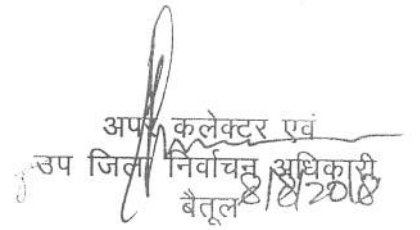 अपर कलेक्टर एवं
उप जिला निर्वाचन अधिकारी
बैतूल 8/8/2018